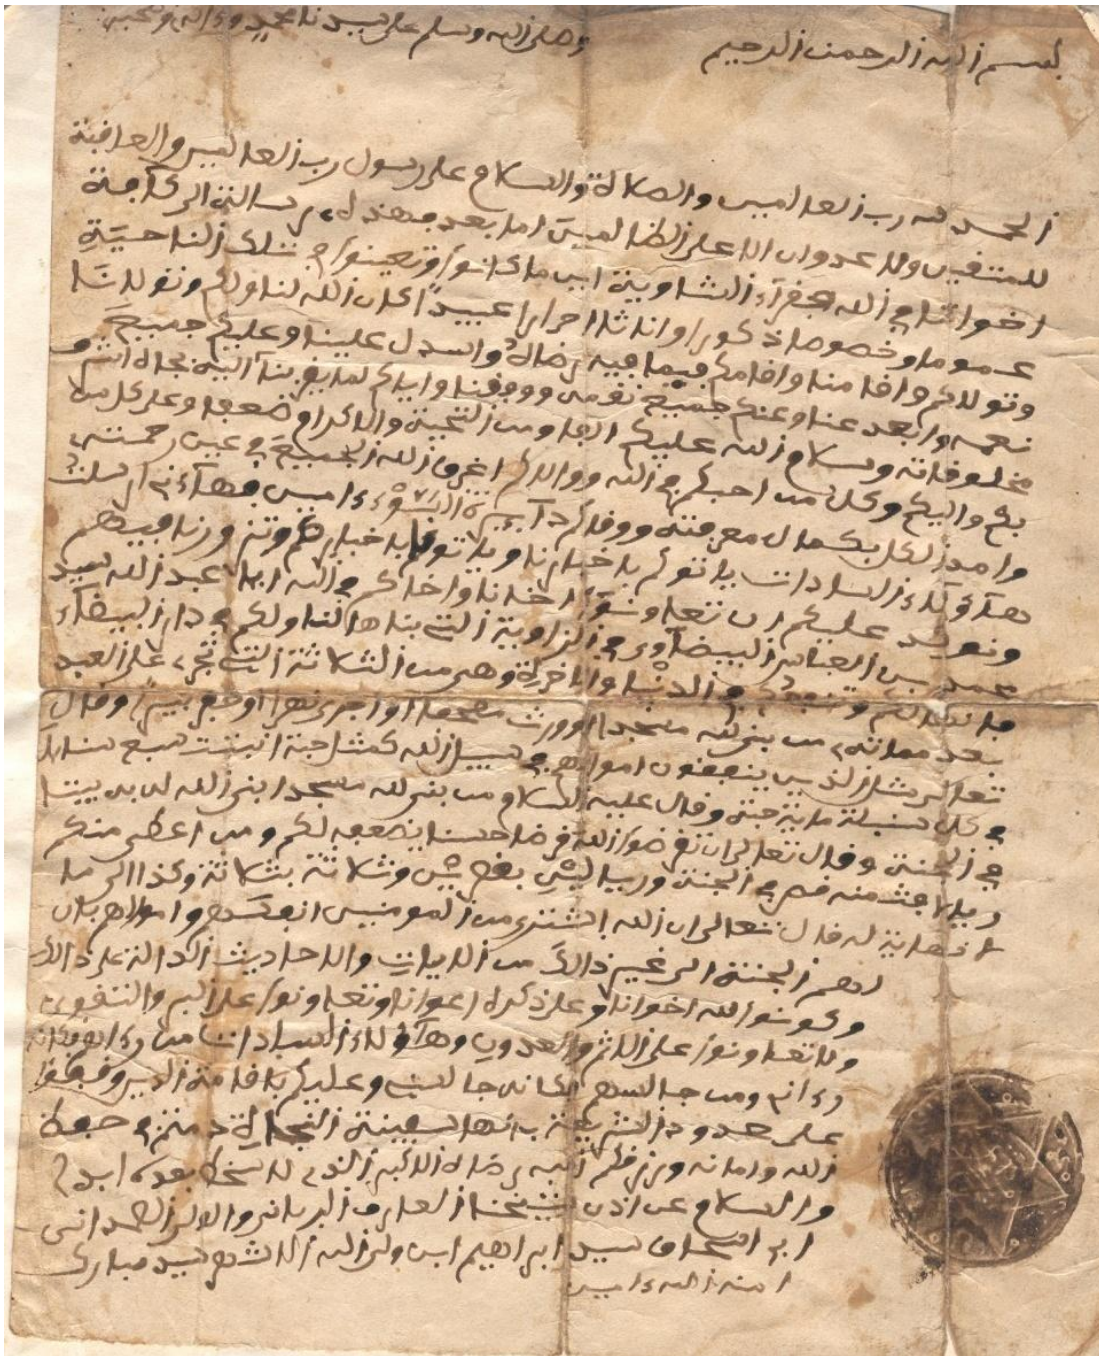 بسم الله الرحمن الرحيم وصلى الله وسلم على سيدنا محمد وءاله وصحبه
الحمد لله رب العالمين والصلاة والسلام على رسول رب العالمين والعافية
للمتقين ولا عدوان الا على الظالمين اما بعد فهذه رسالتي الى كآفة
اخواننا في الله بفقرآء الشاوية اين ما كانوا وتعينوا في تلك الناحية
عموما وخصوصا ذكورا واناثا احرارا عبيدا كان الله لنا ولكم وتولانا
وتولاكم واقامنا واقامكم فيما فيه رضاه واسدل علينا وعليكم جميع
نعمه وابعد عنا وعنكم جميع نقمه ووفقنا واياكم لما يقربنا اليه بجاه اشرف
مخلوقاته وسلام الله عليكم الفا ومن التحية والاكرام ضعفا وعلى كل من
بكم واليكم وكل من احبكم في الله ووالاكم اغرق الله الجميع في عين رحمته
وامد الكل بكمال معرفته ووقاكم دآيرة السوء ءامين فهآءنا ارسلت
هآؤلاء السادات ياتوكم باخبارنا وياتونا باخباركم وتزورنا فيهم
ونوكد عليكم ان تعاونوا اخانا واخاكم في الله ابا عبد الله سيد
محمد بن العباس البيضآوي في الزاوية التي بناها لنا ولكم في دار البيضآء
في الدنيا والاخرة وهي من الثلاثة التي تجري على العبد
بعد مماته من بنى لله مسجدا او ورث مصحفا او اجرى نهرا او حفر بيرا وقال
تعالى مثل الذين ينفقون اموالهم في سبيل الله كمثل حبة انبتت سبع سنابل
في كل سنبلة ماية حبة وقال عليه السلام من بنى لله مسجدا بنى الله له بيتا
في الجنة وقال تعالى ان تقرضوا الله قرضا حسنا يضعفه لكم ومن اعطى منكم
ريالا جئت منه قصر في الجنة وريالين بقصرين وثلاثة بثلاثة وكذا الى ما
لا نهاية له قال تعالى ان الله اشترى من المومنين انفسهم واموالهم بان
لهم الجنة الى غير ذالك من الايات والاحاديث الدالة على ذالك
وكونوا لله اخوانا وعلى ذكره اعوانا وتعاونوا على البر والتقوى
ولا تعاونوا على الاثم والعدون وهآؤلاء السادات
ومن جالسهم فكانه جالسني وعليكم باقامة الدين وقفوا
على حدود الشريعة بانها السفينة المنجية دمتم في حفظ
الله وامانه ورزقكم الله رضاه الاكبر الذي لا سخط بعده ابدا
والسلام عن اذن شيخنا العارف الرباني والولي الصمداني
ابي اسحاق سيد ابراهيم ابن ولي الله الاشهر سيد مبارك
امنه الله ءامين